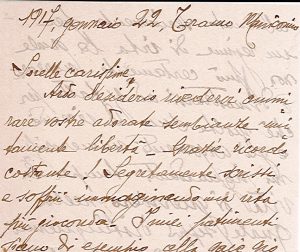 1917, gennaio 22, Teramo
Sorelle carissime,
Ardo desiderio rivedervi ammi
rare vostre adorate sembianze uni
tamente libertà - Grazie ricordo
costante! Segretamente scrissi
e soffrii immaginando via vita
più gioconda. I miei patimenti
siano di esempio alla mia